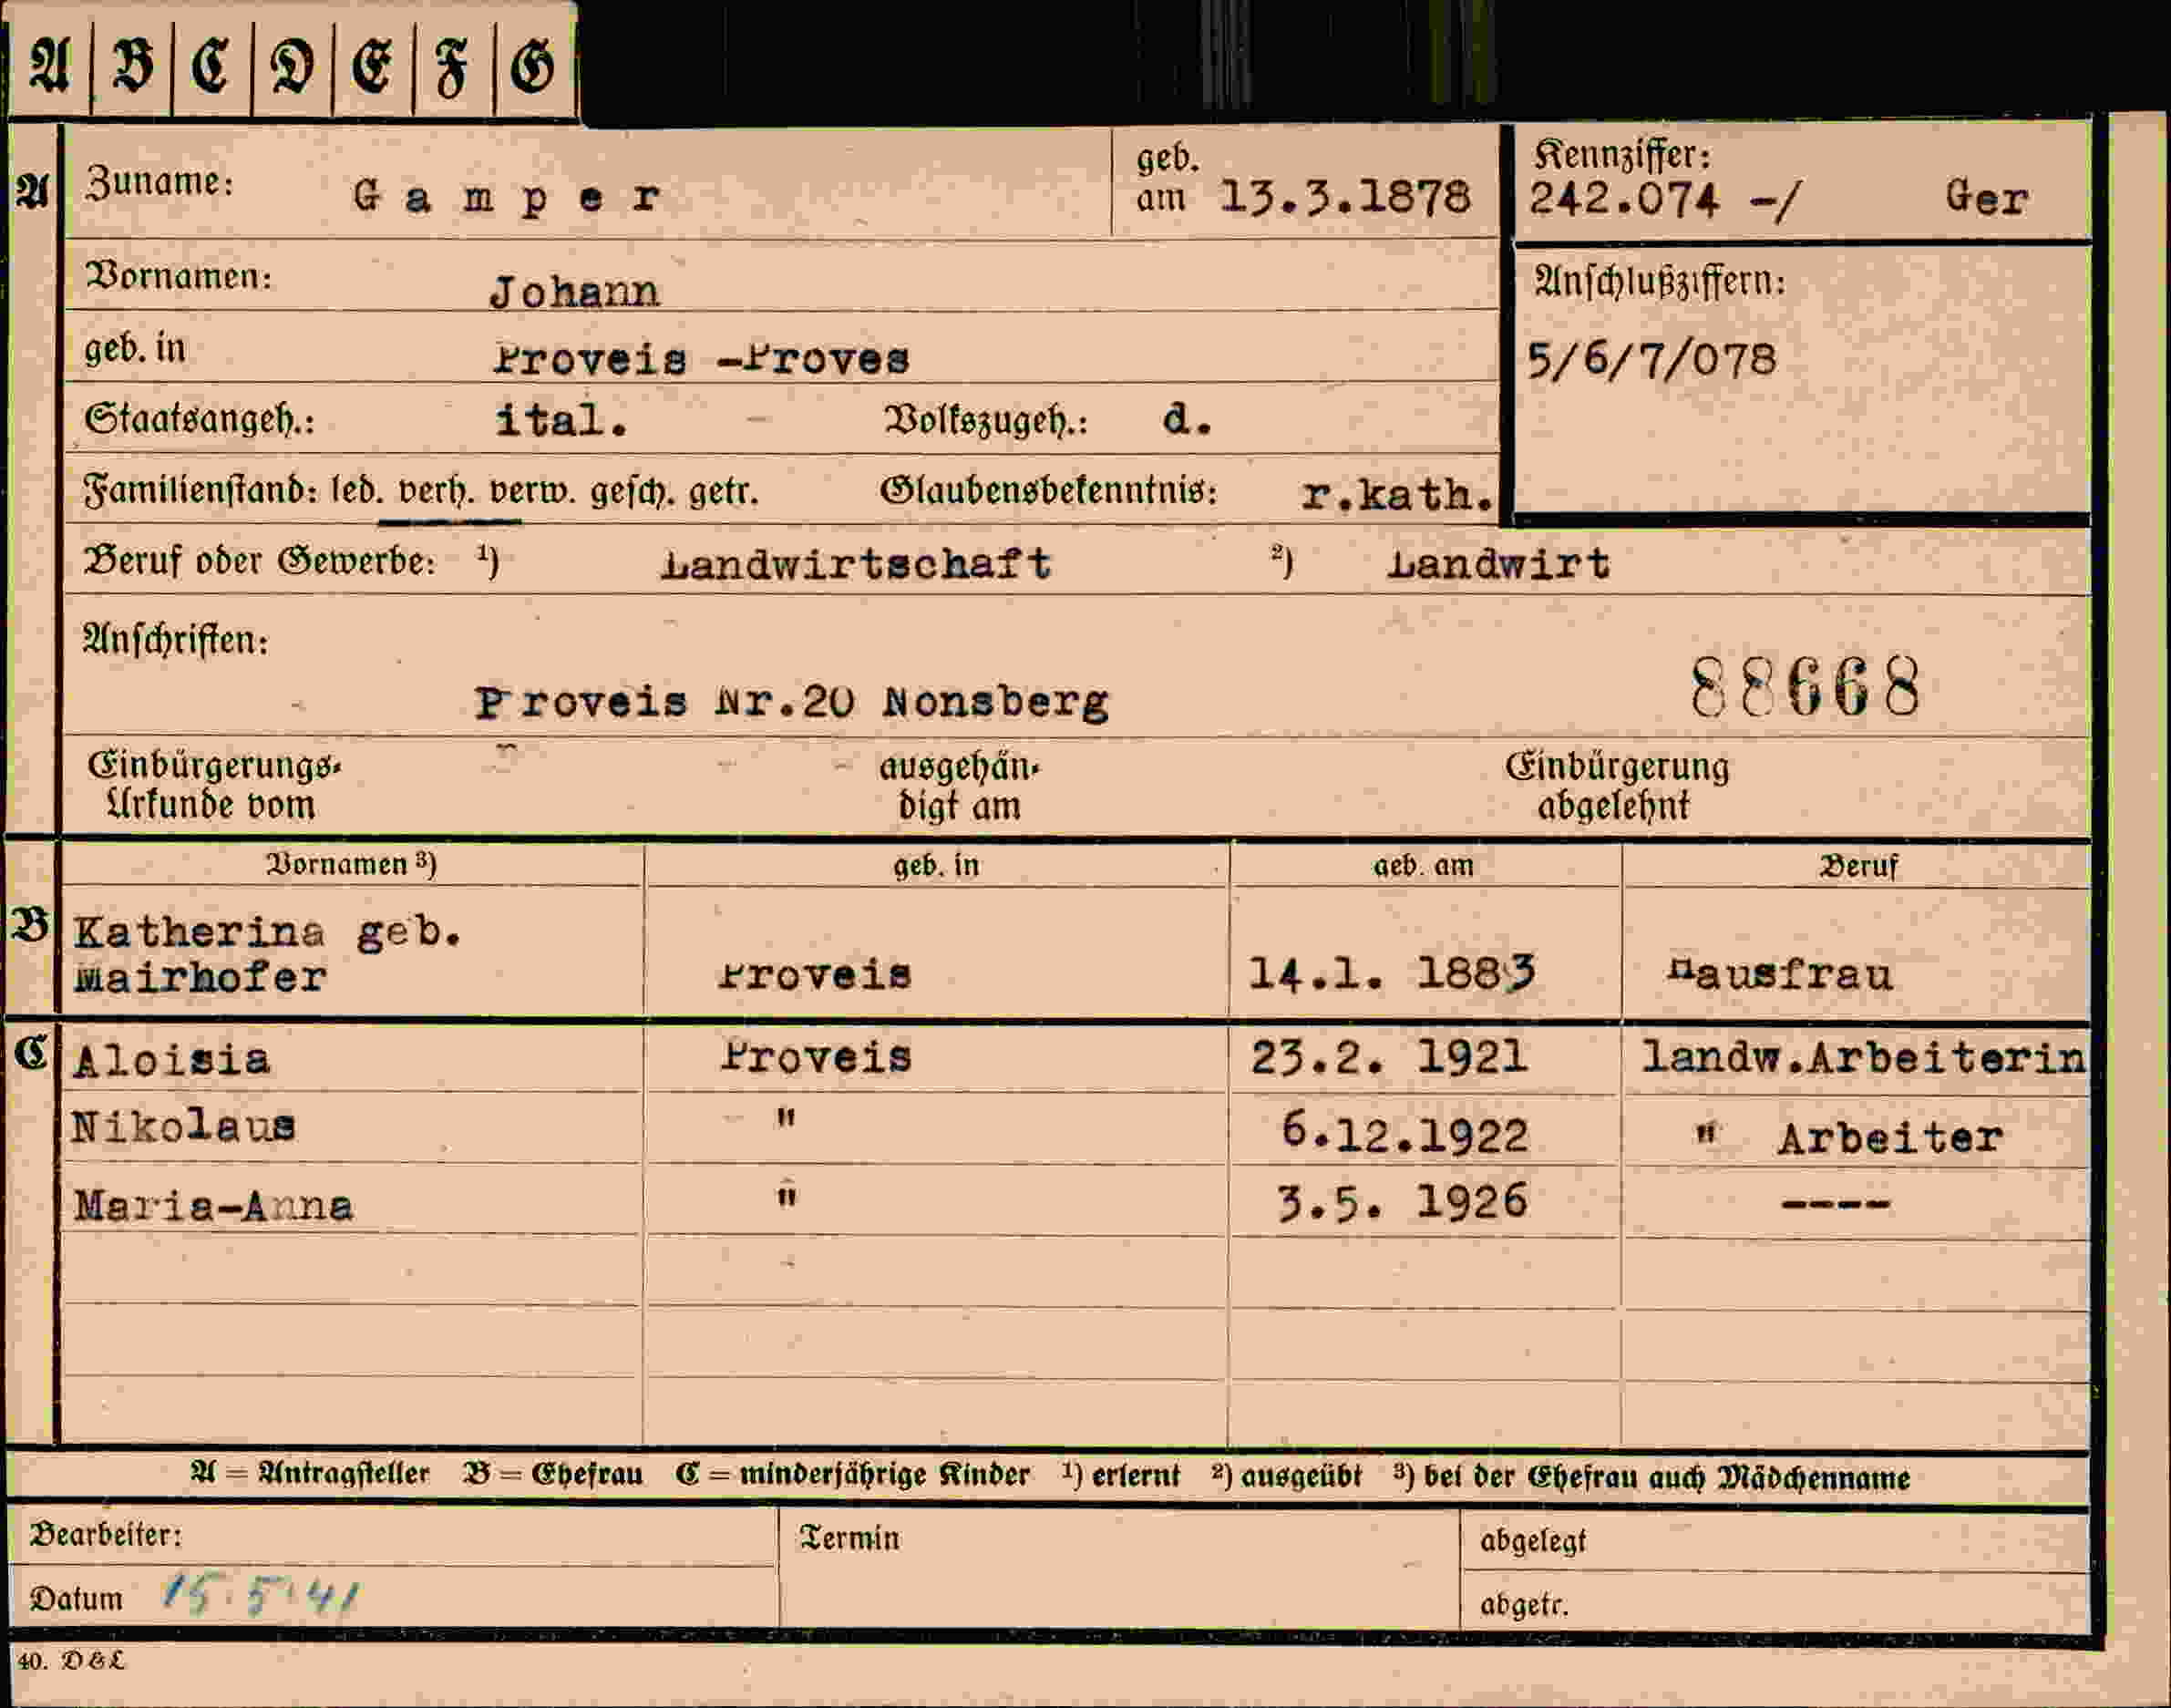 A B C D E F G
A Zuname: Gamper geb. am 13.3.1878 Kennziffer: 242.074 -/ Ger
Vornamen: Johann Anschlußziffern:
geb. in Proveis -Proves 5/6/7/078
Staatsangeh.: ital. Volkszugeh.: d.
Familienstand: led. verh. verw. gesch. getr. Glaubensbekenntnis: r.kath.
Beruf oder Gewerbe: ¹) Landwirtschaft ²) Landwirt
Anschriften:
Proveis Nr.20 Nonsberg 88668
Einbürgerungs- ausgehän- Einbürgerung
Urkunde vom digt am abgelehnt
Vornamen ³) geb. in geb. am Beruf
B Katherina geb.
Mairhofer Proveis 14.1. 1883 Hausfrau
C Aloisia Proveis 23.2. 1921 landw.Arbeiterin
Nikolaus " 6.12.1922 " Arbeiter
Maria-Anna " 3.5. 1926 ----
A = Antragsteller B = Ehefrau C = minderjährige Kinder ¹) erlernt ²) ausgeübt ³) bei der Ehefrau auch Mädchenname
Bearbeiter: Termin abgelegt
Datum 15.5.41 abgetr.
40. D&L